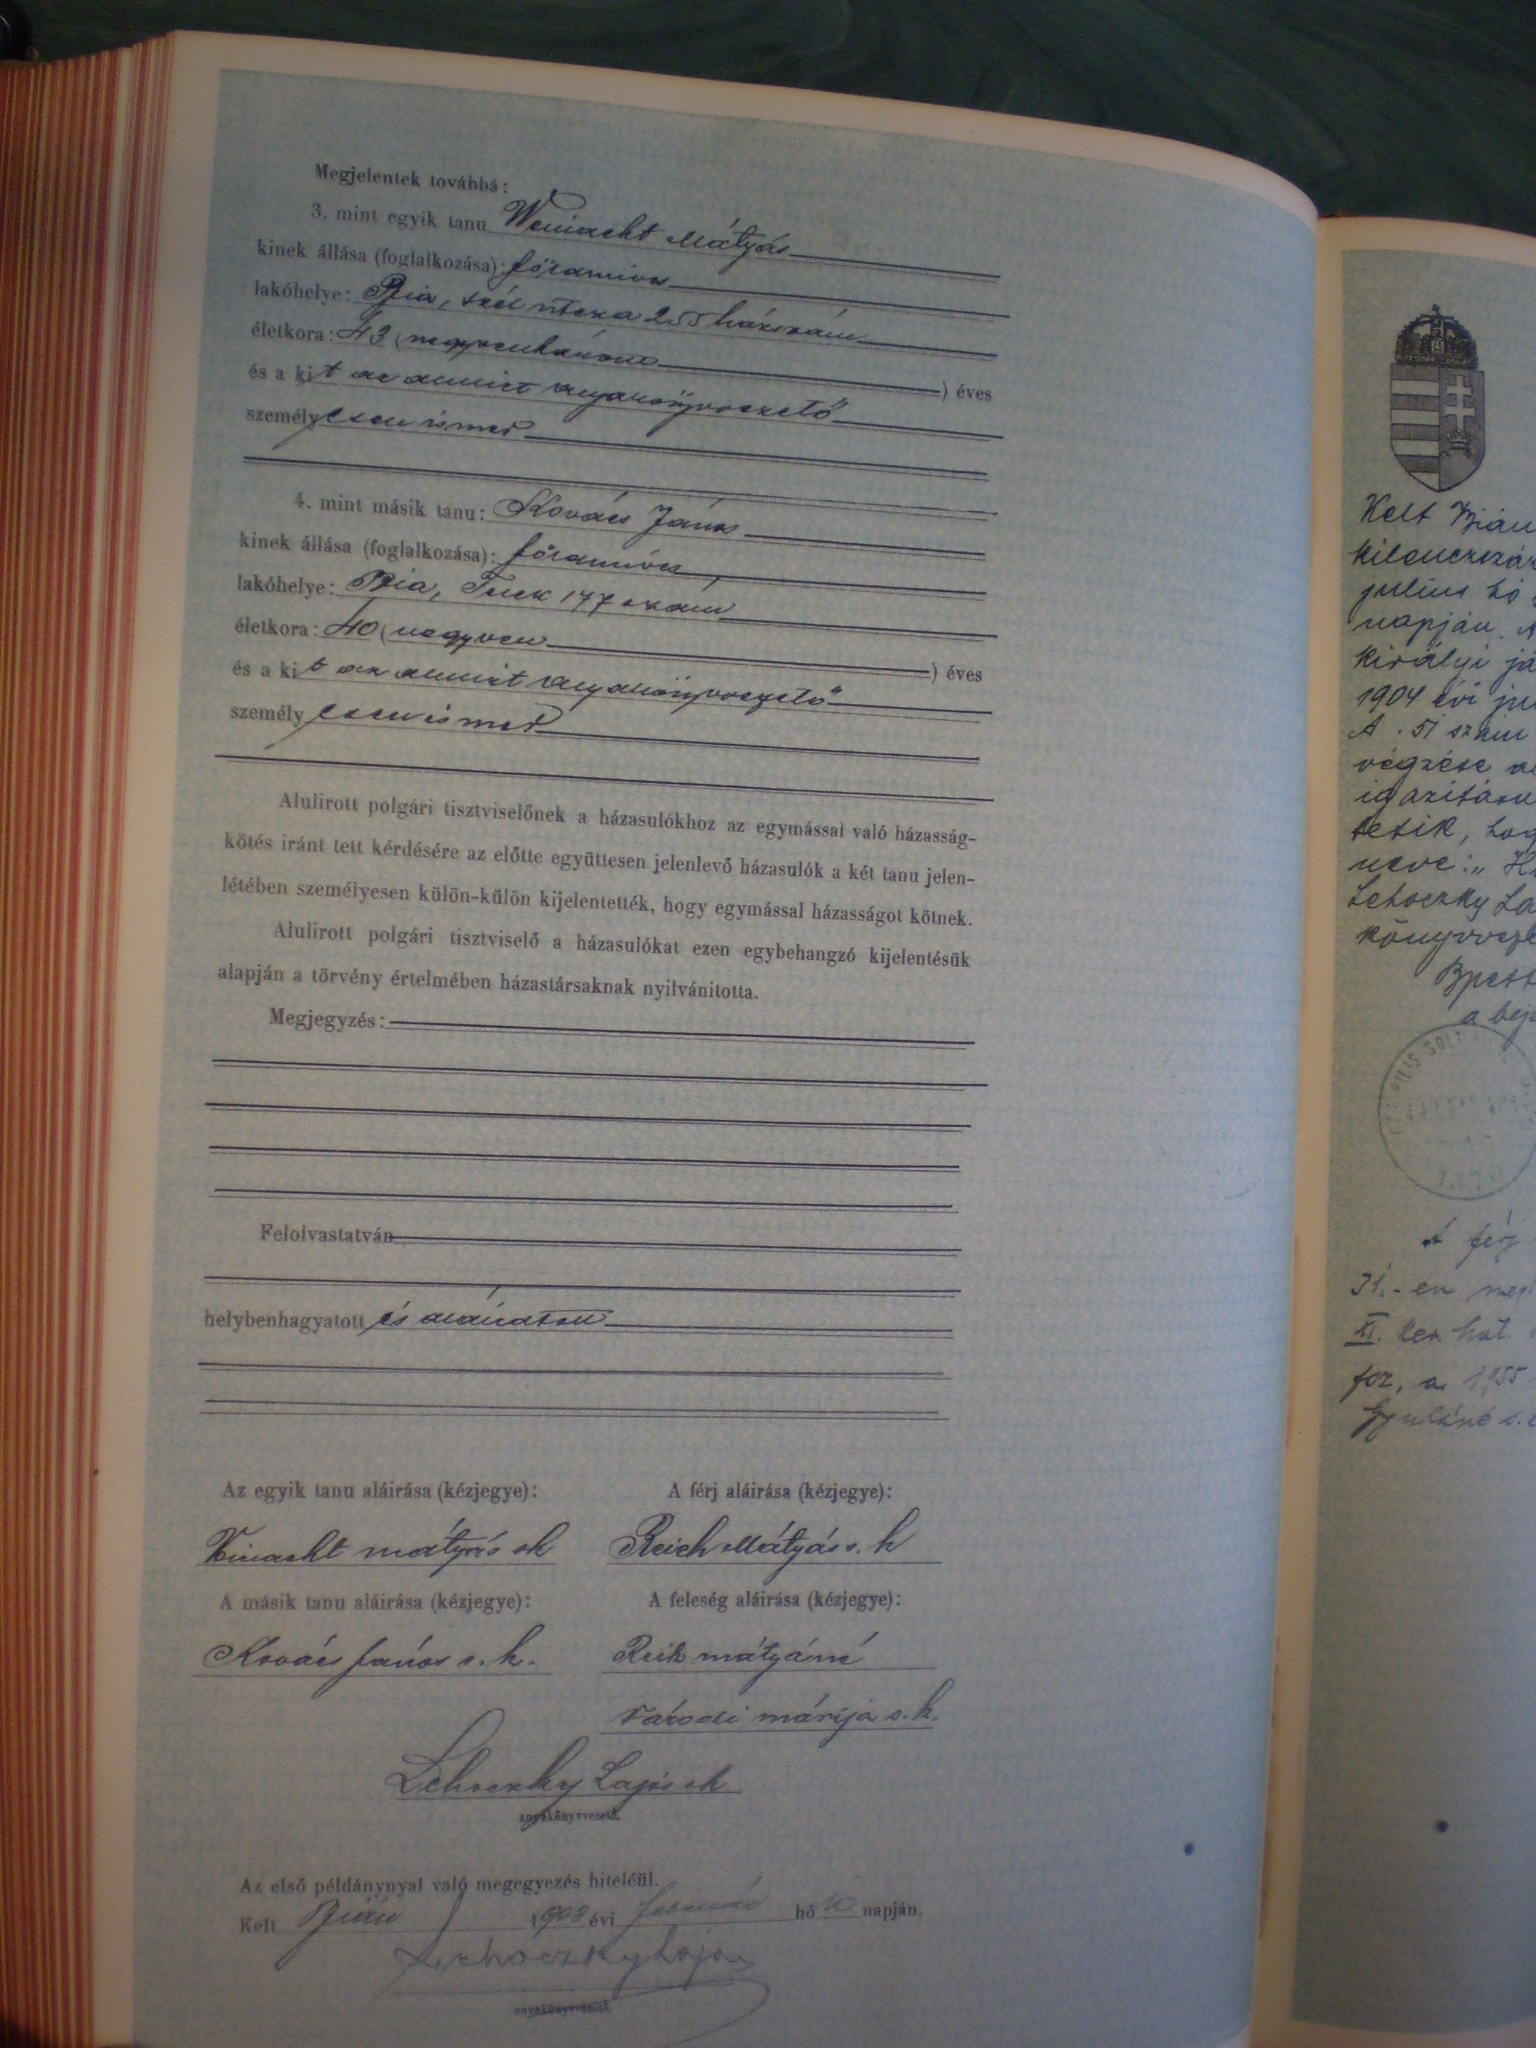 Megjelentek továbbá:
3. mint egyik tanu Weinacht Mátyás
kinek állása (foglalkozása): földmives
lakóhelye: Bia, szél utcza 255 házszám
életkora: 43 (negyvenhárom) éves
és a kit az alulirt anyakönyvvezető
személyesen ismer
4. mint másik tanu: Kovács János
kinek állása (foglalkozása): földmives
lakóhelye: Bia, 177 szám
életkora: 40 (negyven) éves
és a kit az alulirt anyakönyvvezető
személyesen ismer
Alulirott polgári tisztviselőnek a házasulókhoz az egymással való házasság-
kötés iránt tett kérdésére az előtte együttesen jelenlevő házasulók a két tanu jelen-
létében személyesen külön-külön kijelentették, hogy egymással házasságot kötnek.
Alulirott polgári tisztviselő a házasulókat ezen egybehangzó kijelentésük
alapján a törvény értelmében házastársaknak nyilvánitotta.
Megjegyzés:
Felolvastatván
helybenhagyatott és aláiratott
Az egyik tanu aláirása (kézjegye):
A férj aláirása (kézjegye):
Weinacht mátyás sk
Reich Mátyás s. k
A másik tanu aláirása (kézjegye):
A feleség aláirása (kézjegye):
Kovács János s. k.
Reih mátyásné
Várodi márija s. k.
Lehoczky Lajos sk
anyakönyvvezető.
Az első példánynyal való megegyezés hiteléül.
Kelt Bián 1903 évi február hó 10 napján.
Lehoczky Lajos
anyakönyvvezető.
Kelt Bián
kilenczszáz
julius hó
napján. A
királyi já
1904 évi ju
A . 51 szám
végzése
igazitásu
tetik, hog
neve: „
Lehoczky La
könyvveze
Bpest
a bej
PILIS SOLT
A férj
31.-én meg
XI. ker. hal.
foz. a. 1955
Gyuláné s.